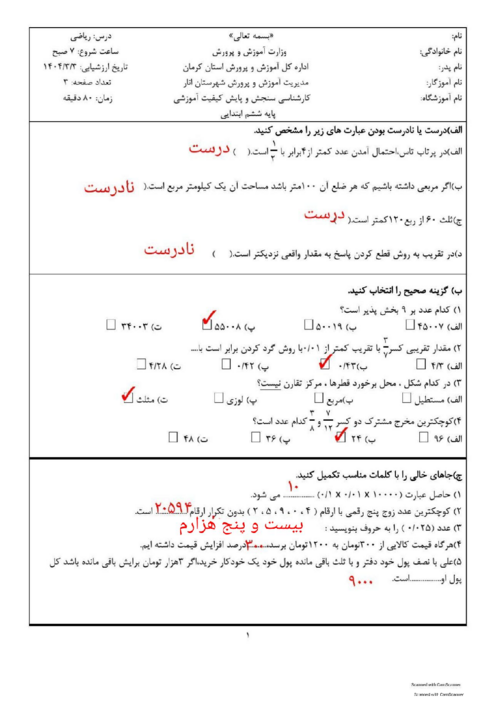 نام:
«بسمه تعالی»
درس: ریاضی
نام خانوادگی:
وزارت آموزش و پرورش
ساعت شروع: ۷ صبح
نام پدر:
اداره کل آموزش و پرورش استان کرمان
تاریخ ارزشیابی: ۱۴۰۴/۳/۳
نام آموزگار:
مدیریت آموزش و پرورش شهرستان انار
تعداد صفحه: ۳
نام آموزشگاه:
کارشناسی سنجش و پایش کیفیت آموزشی
زمان: ۸۰ دقیقه
پایه ششم ابتدایی
الف)درست یا نادرست بودن عبارت های زیر را مشخص کنید.
الف)در پرتاب تاس،احتمال آمدن عدد کمتر از۴برابر با ۱/۲ است.( ) درست
ب)اگر مربعی داشته باشیم که هر ضلع آن ۱۰۰متر باشد مساحت آن یک کیلومتر مربع است.( نادرست
ج)ثلث ۶۰ از ربع۱۲۰کمتر است.( درست
د)در تقریب به روش قطع کردن پاسخ به مقدار واقعی نزدیکتر است.( ) نادرست
ب) گزینه صحیح را انتخاب کنید.
۱) کدام عدد بر ۹ بخش پذیر است؟
الف) ۴۵۰۰۷ ب) ۵۰۰۱۹ پ) ۵۵۰۰۸ ت) ۳۴۰۰۳
۲) مقدار تقریبی کسر ۳/۷ با تقریب کمتر از ۰/۰۱با روش گرد کردن برابر است با....
الف) ۴/۳ ب)۰/۴۳ پ) ۰/۴۲ ت) ۴/۲۸
۳) در کدام شکل ، محل برخورد قطرها ، مرکز تقارن نیست؟
الف) مستطیل ب)مربع پ) لوزی ت) مثلث
۴)کوچکترین مخرج مشترک دو کسر ۷/۱۲ و ۳/۸ کدام عدد است؟
الف) ۹۶ ب) ۲۴ پ) ۳۶ ت) ۴۸
ج)جاهای خالی را با کلمات مناسب تکمیل کنید.
۱) حاصل عبارت (۱۰۰۰۰ × ۰/۰۱ × ۰/۱) ............... می شود. ۱۰
۲) کوچکترین عدد زوج پنج رقمی با ارقام ( ۴ ، ۰ ، ۹ ، ۵ ، ۲ ) بدون تکرار ارقام ۲۰۵۹۴ است.
۳) عدد (۰/۰۲۵) را به حروف بنویسید : بیست و پنج هزارم
۴)هرگاه قیمت کالایی از ۳۰۰تومان به ۱۲۰۰تومان برسد، ۳۰۰درصد افزایش قیمت داشته ایم.
۵)علی با نصف پول خود دفتر و با ثلث باقی مانده پول خود یک خودکار خرید،اگر ۳هزار تومان برایش باقی مانده باشد کل
پول او...............است. ۹۰۰۰
۱
Scanned with CamScanner
Scanned with CamScanner